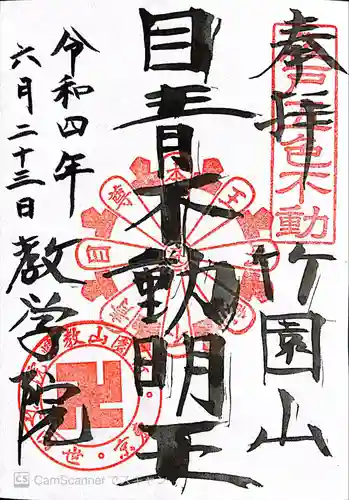 奉拝
竹園山
目青不動明王
令和四年
六月二十三日
教学院
江戸五色不動
CamScanner でス